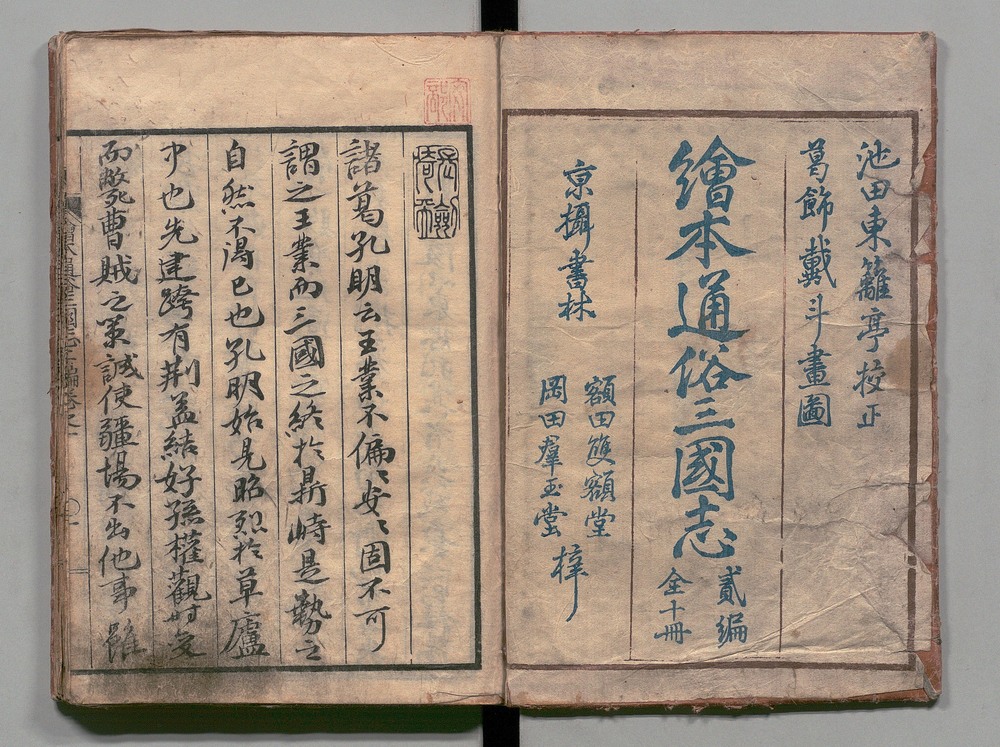 池田東籬亭挍正
葛飾戴斗畫圖
繪本通俗三國志
貳編
全十冊
京攝書林
額田雙額堂
岡田羣玉堂
梓
諸葛孔明云王業不偏〻安〻固不可
謂之王業而三國之終於鼎峙是勢之
自然不得已也孔明始見昭烈於草廬
中也先建跨有荆益結好孫權觀時變
而斃曹賊之策誠使疆場不出他事雖